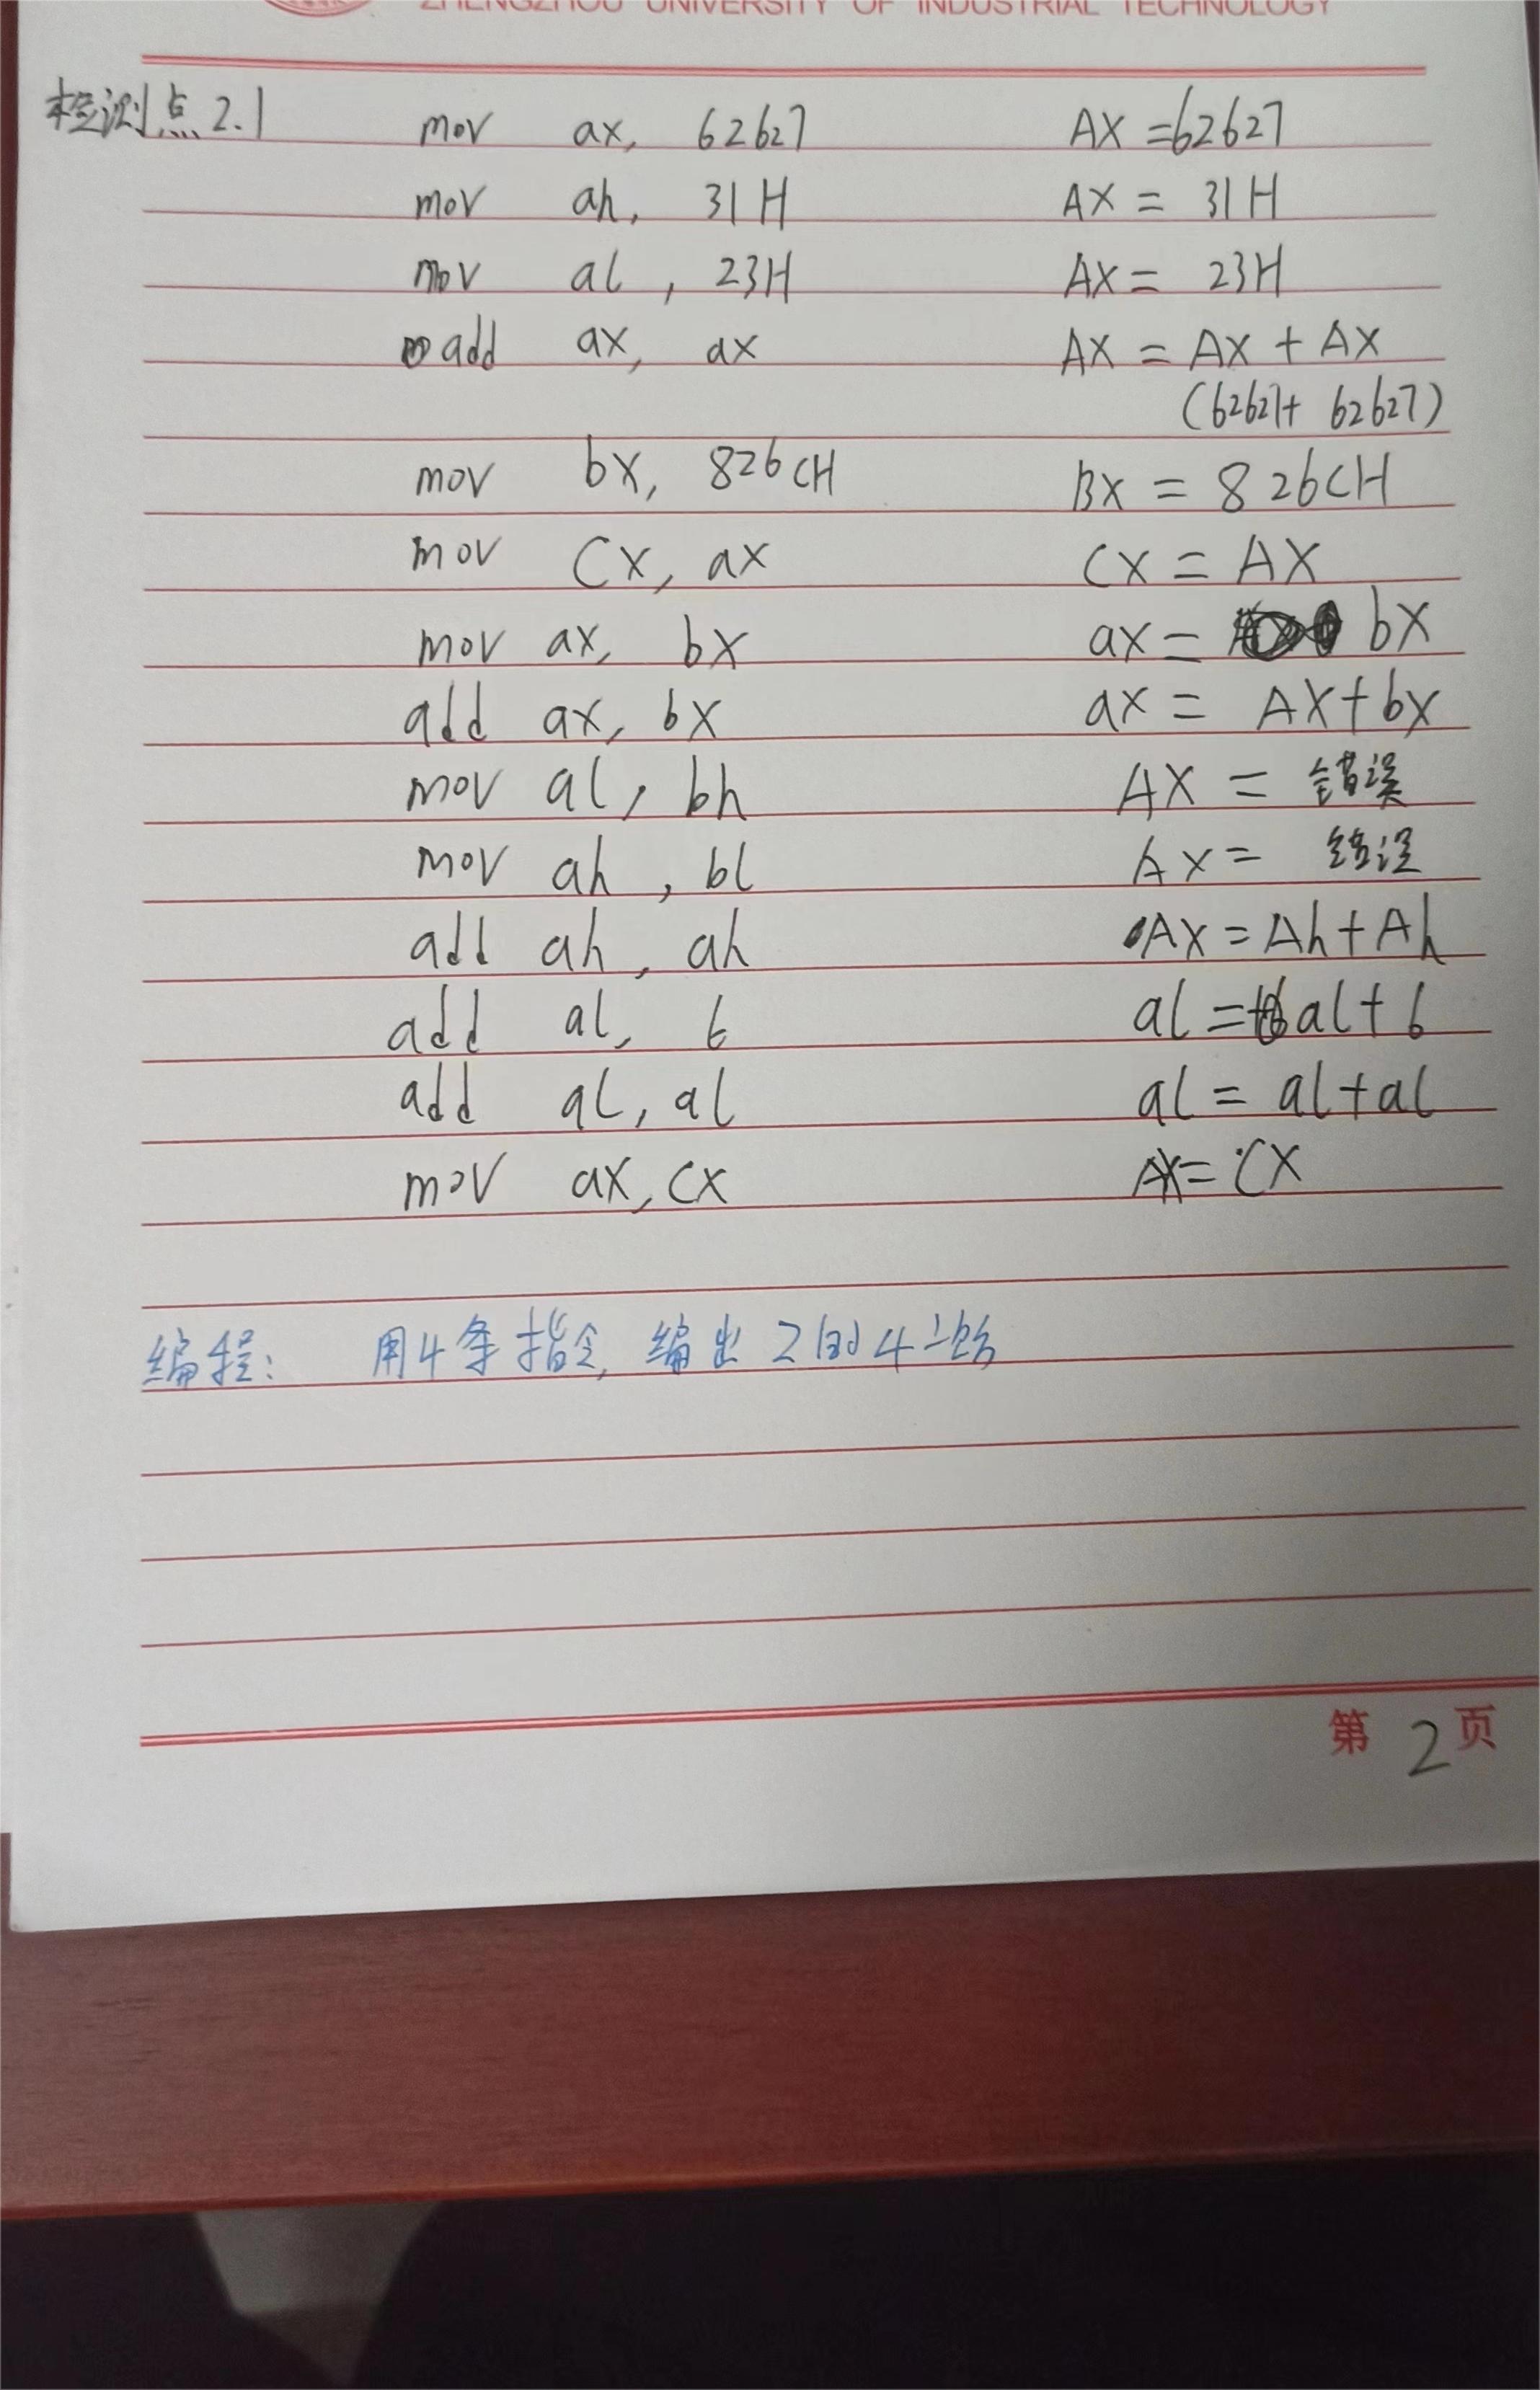 ZHENGZHOU UNIVERSITY OF INDUSTRIAL TECHNOLOGY
检测点 2.1 mov ax, 62627 AX = 62627
mov ah, 31H AX = 31H
mov al, 23H AX = 23H
add ax, ax AX = AX + AX
(62627 + 62627)
mov bx, 826CH BX = 826CH
mov cx, ax CX = AX
mov ax, bx ax = bx
add ax, bx ax = AX+bx
mov al, bh AX = 错误
mov ah, bl AX = 错误
add ah, ah AX = Ah + Ah
add al, 6 al = al + 6
add al, al al = al+al
mov ax, cx AX = CX
编程: 用4条指令, 编出 2的4次
第 2 页